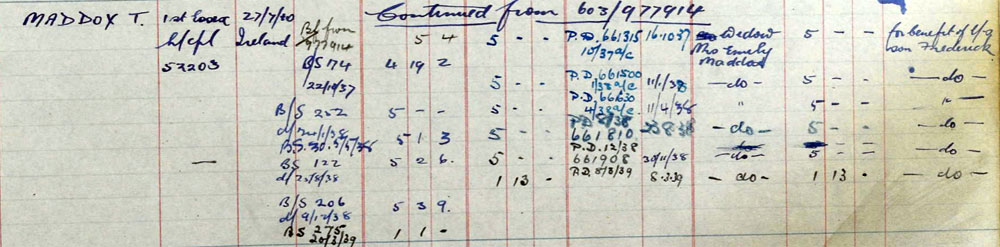 Continued from 603/977914
MADDOX T. 1st Essex 27/7/20 B/S from 977914 5 4 5 - - P.D. 661315 16.10.37 Widow 5 - - for benefit of
L/Cpl Ireland 10/37 a/c Mrs Emily Maddox son Frederick
53203 BS 174 4 19 2
22/10/37 5 - - P.D. 661500 11/1/38 -do- 5 - - -do-
1/38 a/c
B/S 252 5 - - 5 - - P.D. 66630 11/4/38 " 5 - - "
4/38 a/c
B.S. 30. 5 1 3 5 - - 661810 -do- 5 - - -do-
- BS 122 5 2 6. 5 - - P.D. 12/38 661908 30/11/38 -do- 5 - = -do-
d/25/8/38 1 13 - P.D. 5/8/39 8.3.39 -do- 1 13 - -do-
B/S 206 5 3 9.
d/9/12/38
BS 275 1 1 -
20/3/39